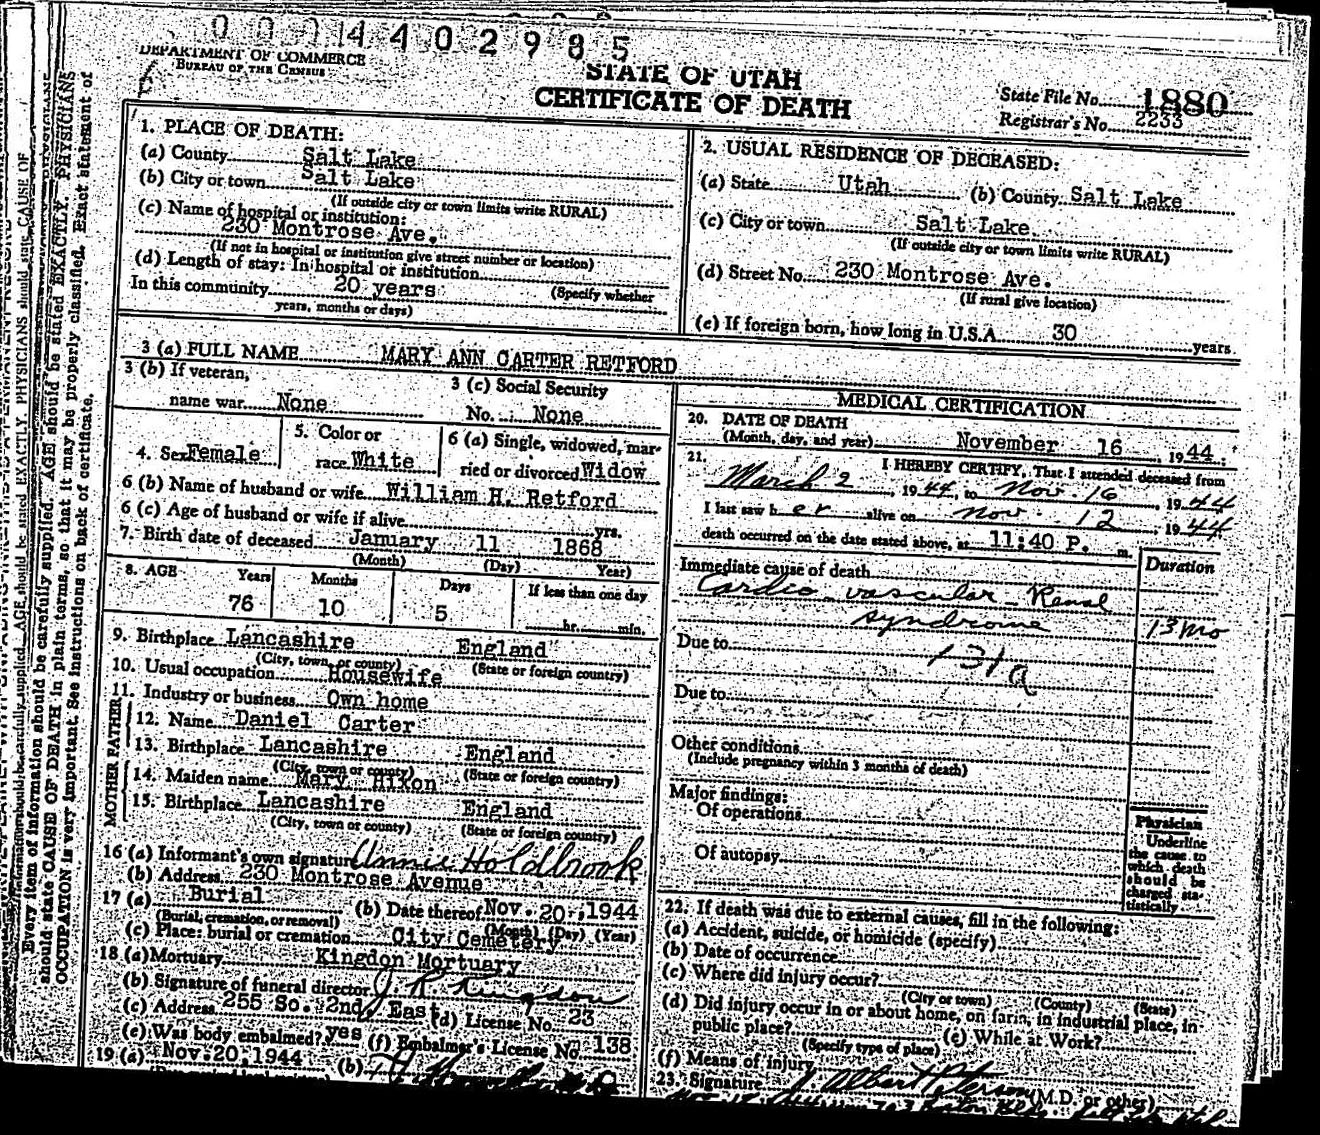 00014402985
DEPARTMENT OF COMMERCE
BUREAU OF THE CENSUS
STATE OF UTAH
CERTIFICATE OF DEATH
State File No. 1880
Registrar's No. 2233
1. PLACE OF DEATH:
(a) County Salt Lake
(b) City or town Salt Lake
(If outside city or town limits write RURAL)
(c) Name of hospital or institution:
230 Montrose Ave.
(If not in hospital or institution give street number or location)
(d) Length of stay: In hospital or institution
In this community 20 years (Specify whether
years, months or days)
2. USUAL RESIDENCE OF DECEASED:
(a) State Utah (b) County Salt Lake
(c) City or town Salt Lake
(If outside city or town limits write RURAL)
(d) Street No. 230 Montrose Ave.
(If rural give location)
(e) If foreign born, how long in U.S.A. 30 years
3 (a) FULL NAME MARY ANN CARTER RETFORD
3 (b) If veteran,
name war None
3 (c) Social Security
No. None
4. Sex Female
5. Color or
race White
6 (a) Single, widowed, mar-
ried or divorced Widow
6 (b) Name of husband or wife William H. Retford
6 (c) Age of husband or wife if alive yrs.
7. Birth date of deceased January 11 1868
(Month) (Day) Year)
8. AGE Years Months Days If less than one day
76 10 5 hr. min.
9. Birthplace Lancashire England
(City, town or county) (State or foreign country)
10. Usual occupation Housewife
11. Industry or business Own home
FATHER
12. Name Daniel Carter
13. Birthplace Lancashire England
(City, town or county) (State or foreign country)
MOTHER
14. Maiden name Mary Hixon
15. Birthplace Lancashire England
(City, town or county) (State or foreign country)
16 (a) Informant's own signature Annie Holdbrook
(b) Address 230 Montrose Avenue
17 (a) Burial (b) Date thereof Nov. 20, 1944
(Burial, cremation, or removal) (Month) (Day) (Year)
(c) Place: burial or cremation City Cemetery
18 (a) Mortuary Kingdon Mortuary
(b) Signature of funeral director J. R. Kingdon
(c) Address 255 So. 2nd East (d) License No. 23
(e) Was body embalmed? yes (f) Embalmer's License No. 138
19 (a) Nov. 20, 1944 (b)
MEDICAL CERTIFICATION
20. DATE OF DEATH
(Month, day, and year) November 16, 1944
21. I HEREBY CERTIFY, That I attended deceased from
March 2, 1944, to Nov. 16, 1944
I last saw her alive on Nov. 12, 1944
death occurred on the date stated above, at 11:40 P. m.
Immediate cause of death Duration
Cardio-vascular-Renal
syndrome 13 mo
Due to 131a
Due to
Other conditions
(Include pregnancy within 3 months of death)
Major findings:
Of operations
Of autopsy
Physician
Underline
the cause to
which death
should be
charged sta-
tistically.
22. If death was due to external causes, fill in the following:
(a) Accident, suicide, or homicide (specify)
(b) Date of occurrence
(c) Where did injury occur?
(City or town) (County) (State)
(d) Did injury occur in or about home, on farm, in industrial place, in
public place? (e) While at Work?
(Specify type of place)
(f) Means of injury
23. Signature Albert Peterson (M.D. or other)
Every item of information should be carefully supplied. AGE should be stated EXACTLY. PHYSICIANS
should state CAUSE OF DEATH in plain terms, so that it may be properly classified. Exact statement of
OCCUPATION is very important. See instructions on back of certificate.